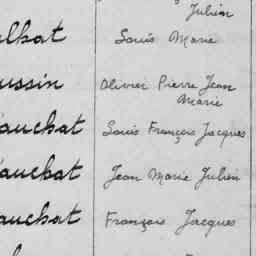 Julien
Louis Marie
ussin Olivier Pierre Jean
Marie
auchat Louis François Jacques
auchat Jean Marie Julien
auchat François Jacques